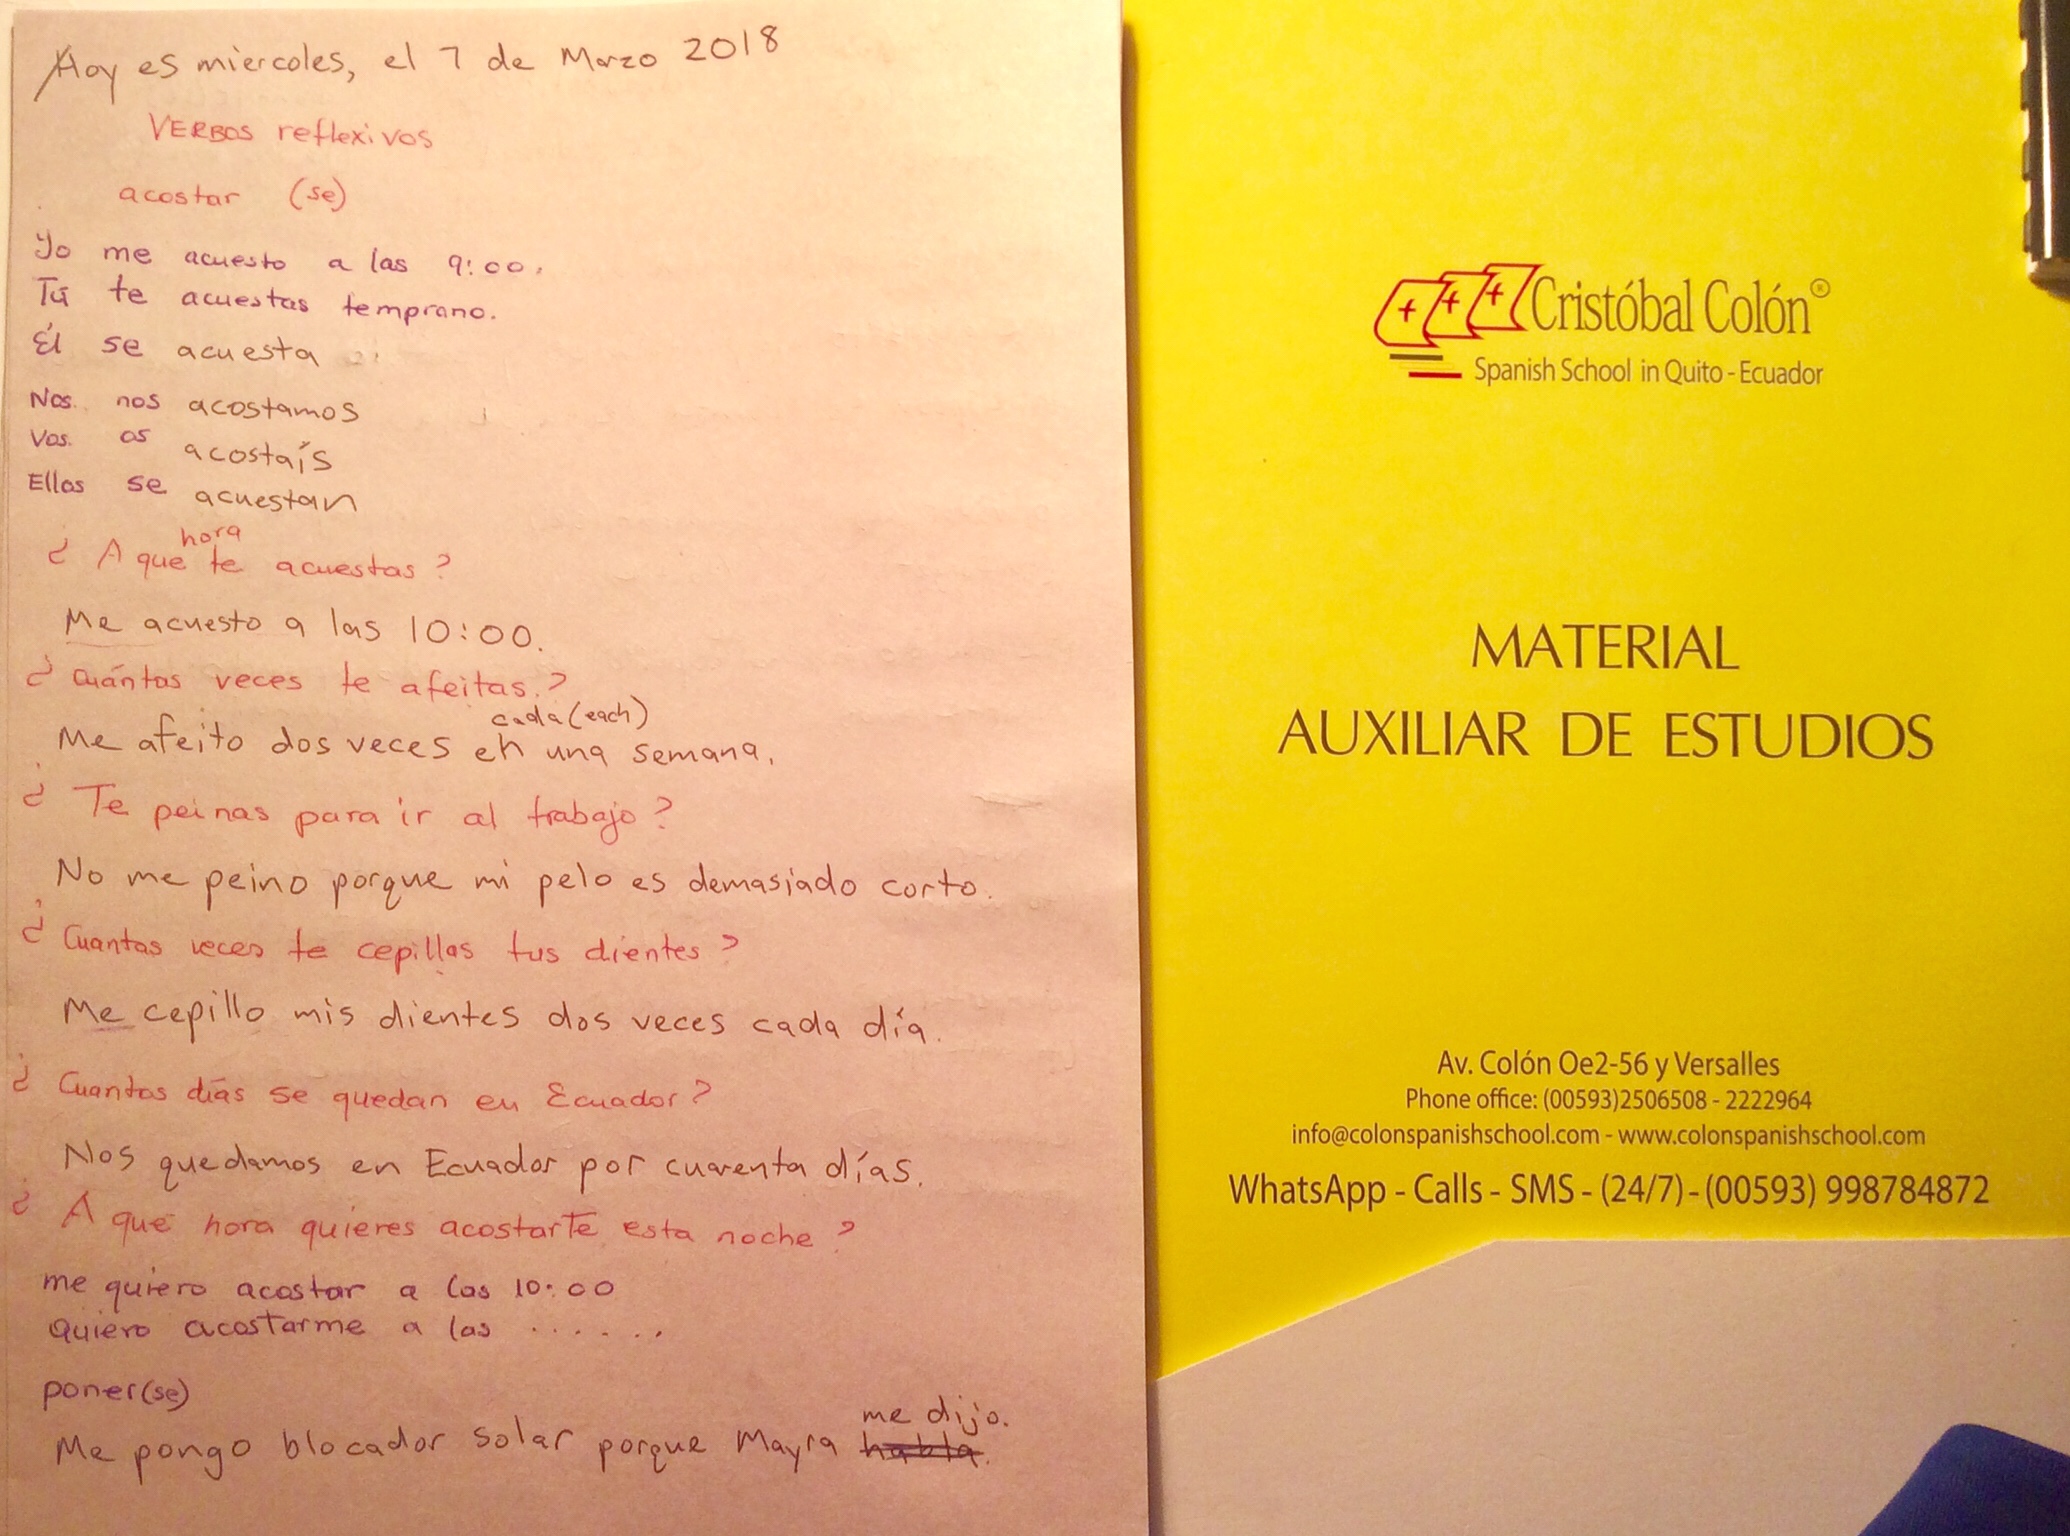 Hoy es miercoles, el 7 de Marzo 2018
VERBOS reflexivos
acostar (se)
Yo me acuesto a las 9:00.
Tú te acuestas temprano.
Él se acuesta
Nos. nos acostamos
Vos. os acostaís
Ellos se acuestan
hora
¿ A que te acuestas ?
Me acuesto a las 10:00.
¿ Cuántas veces te afeitas. ?
cada (each)
Me afeito dos veces en una semana.
¿ Te peinas para ir al trabajo ?
No me peino porque mi pelo es demasiado corto.
¿ Cuantas veces te cepillas tus dientes ?
Me cepillo mis dientes dos veces cada día.
¿ Cuantos días se quedan en Ecuador ?
Nos quedamos en Ecuador por cuarenta días.
¿ A que hora quieres acostarte esta noche ?
me quiero acostar a las 10:00
quiero acostarme a las ......
poner(se)
me dijo.
Me pongo blocador solar porque Mayra habla.
Cristóbal Colón®
Spanish School in Quito - Ecuador
MATERIAL
AUXILIAR DE ESTUDIOS
Av. Colón Oe2-56 y Versalles
Phone office: (00593)2506508 - 2222964
info@colonspanishschool.com - www.colonspanishschool.com
WhatsApp - Calls - SMS - (24/7) - (00593) 998784872